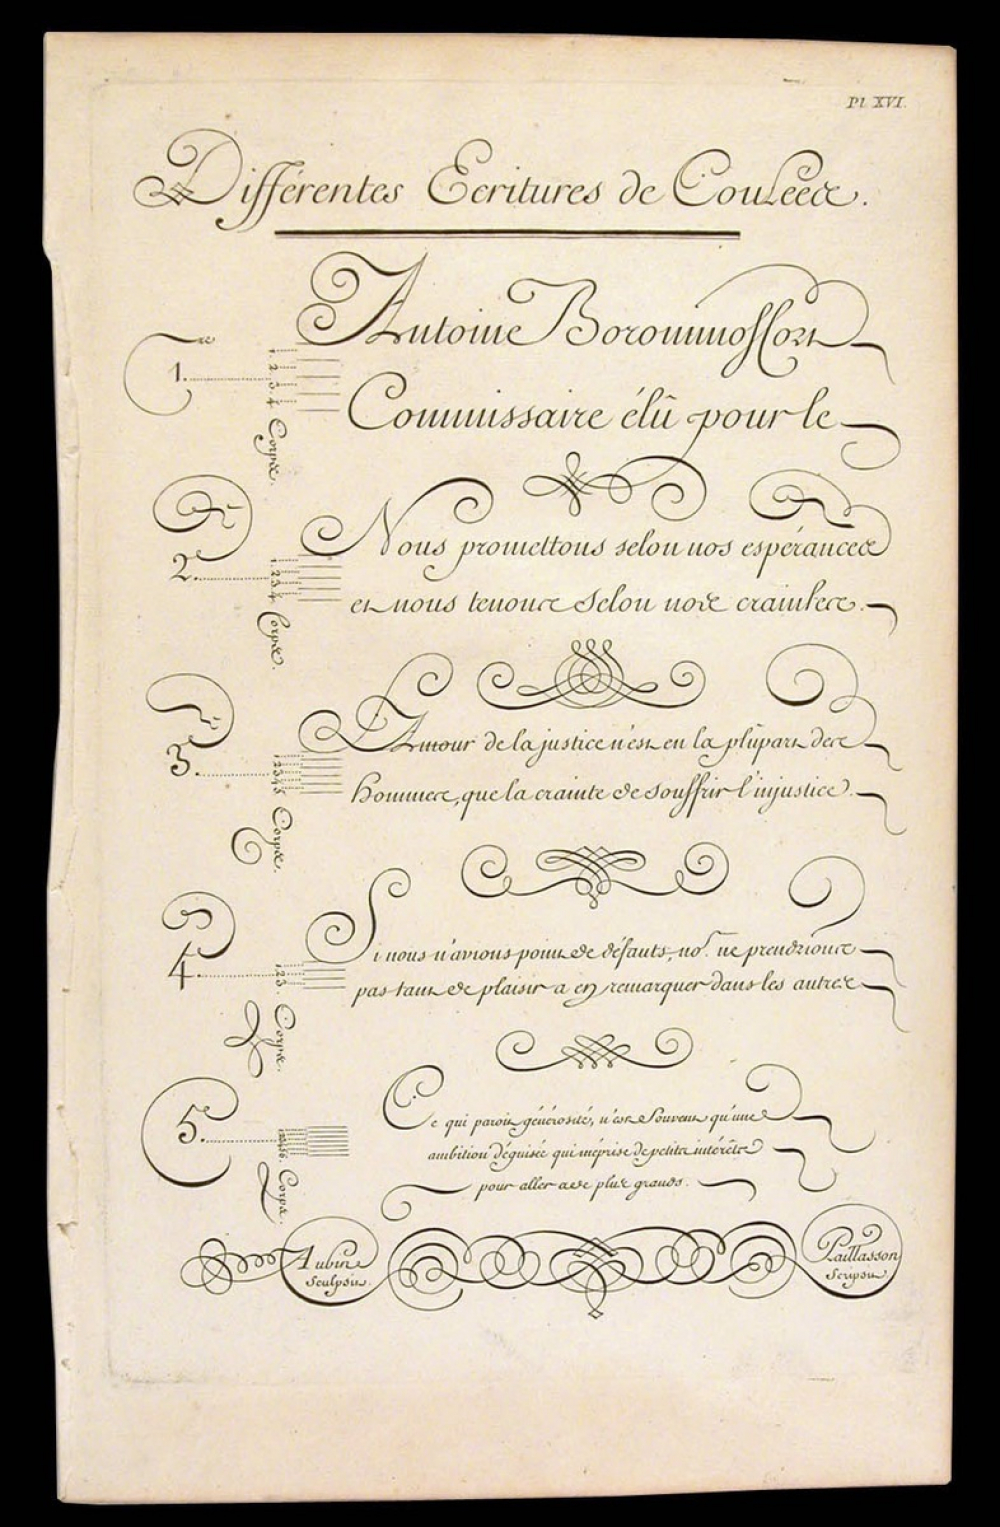 Pl. XVI.
Différentes Ecritures de Coulée.
1.re
1. 2. 3. 4. Corps.
Antoine
Commissaire élû pour le
2.
1. 2. 3. 4. Corps.
Nous promettons selon nos espérances
et nous tenons selon nos craintes.
3.
1 2 3 4 5 Corps.
L'Amour de la justice n'est en la plûpart des
hommes, que la crainte de souffrir l'injustice.
4.
1. 2. 3. Corps.
Si nous n'avions point de défauts, no.s ne prendrions
pas tant de plaisir a en remarquer dans les autres
5.
Corps.
Ce qui paroit générosité, n'est souvent qu'une
ambition déguisée qui méprise de petits intérêts
pour aller a de plus grands.
Aubin
Sculpsit.
Paillasson
Scripsit.